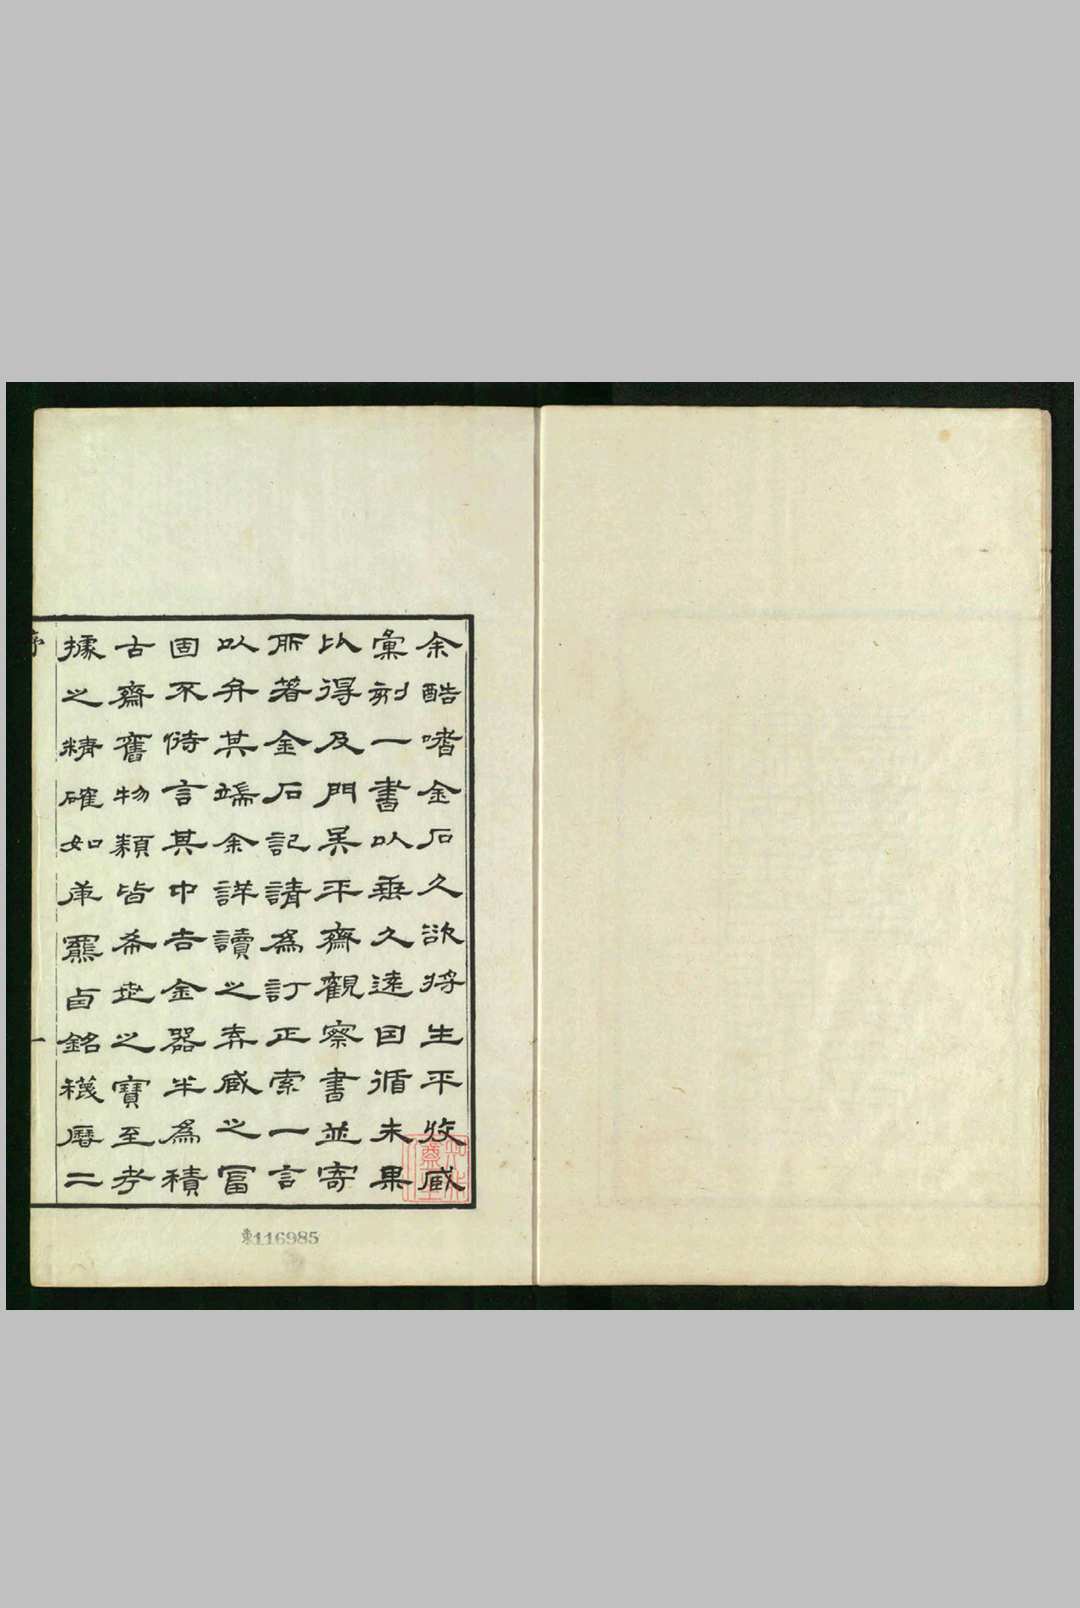 余酷嗜金石久欲將生平收臧
彙刻一書以垂久遠因循未果
比得及門吳平齋觀察書並寄
所箸金石記請爲訂正索一言
以弁其端余詳讀之弆臧之富
固不待言其中吉金器半爲積
古齋舊物類皆希世之寶至考
據之精確如庚羆卣銘穖曆二
序
一
東116985